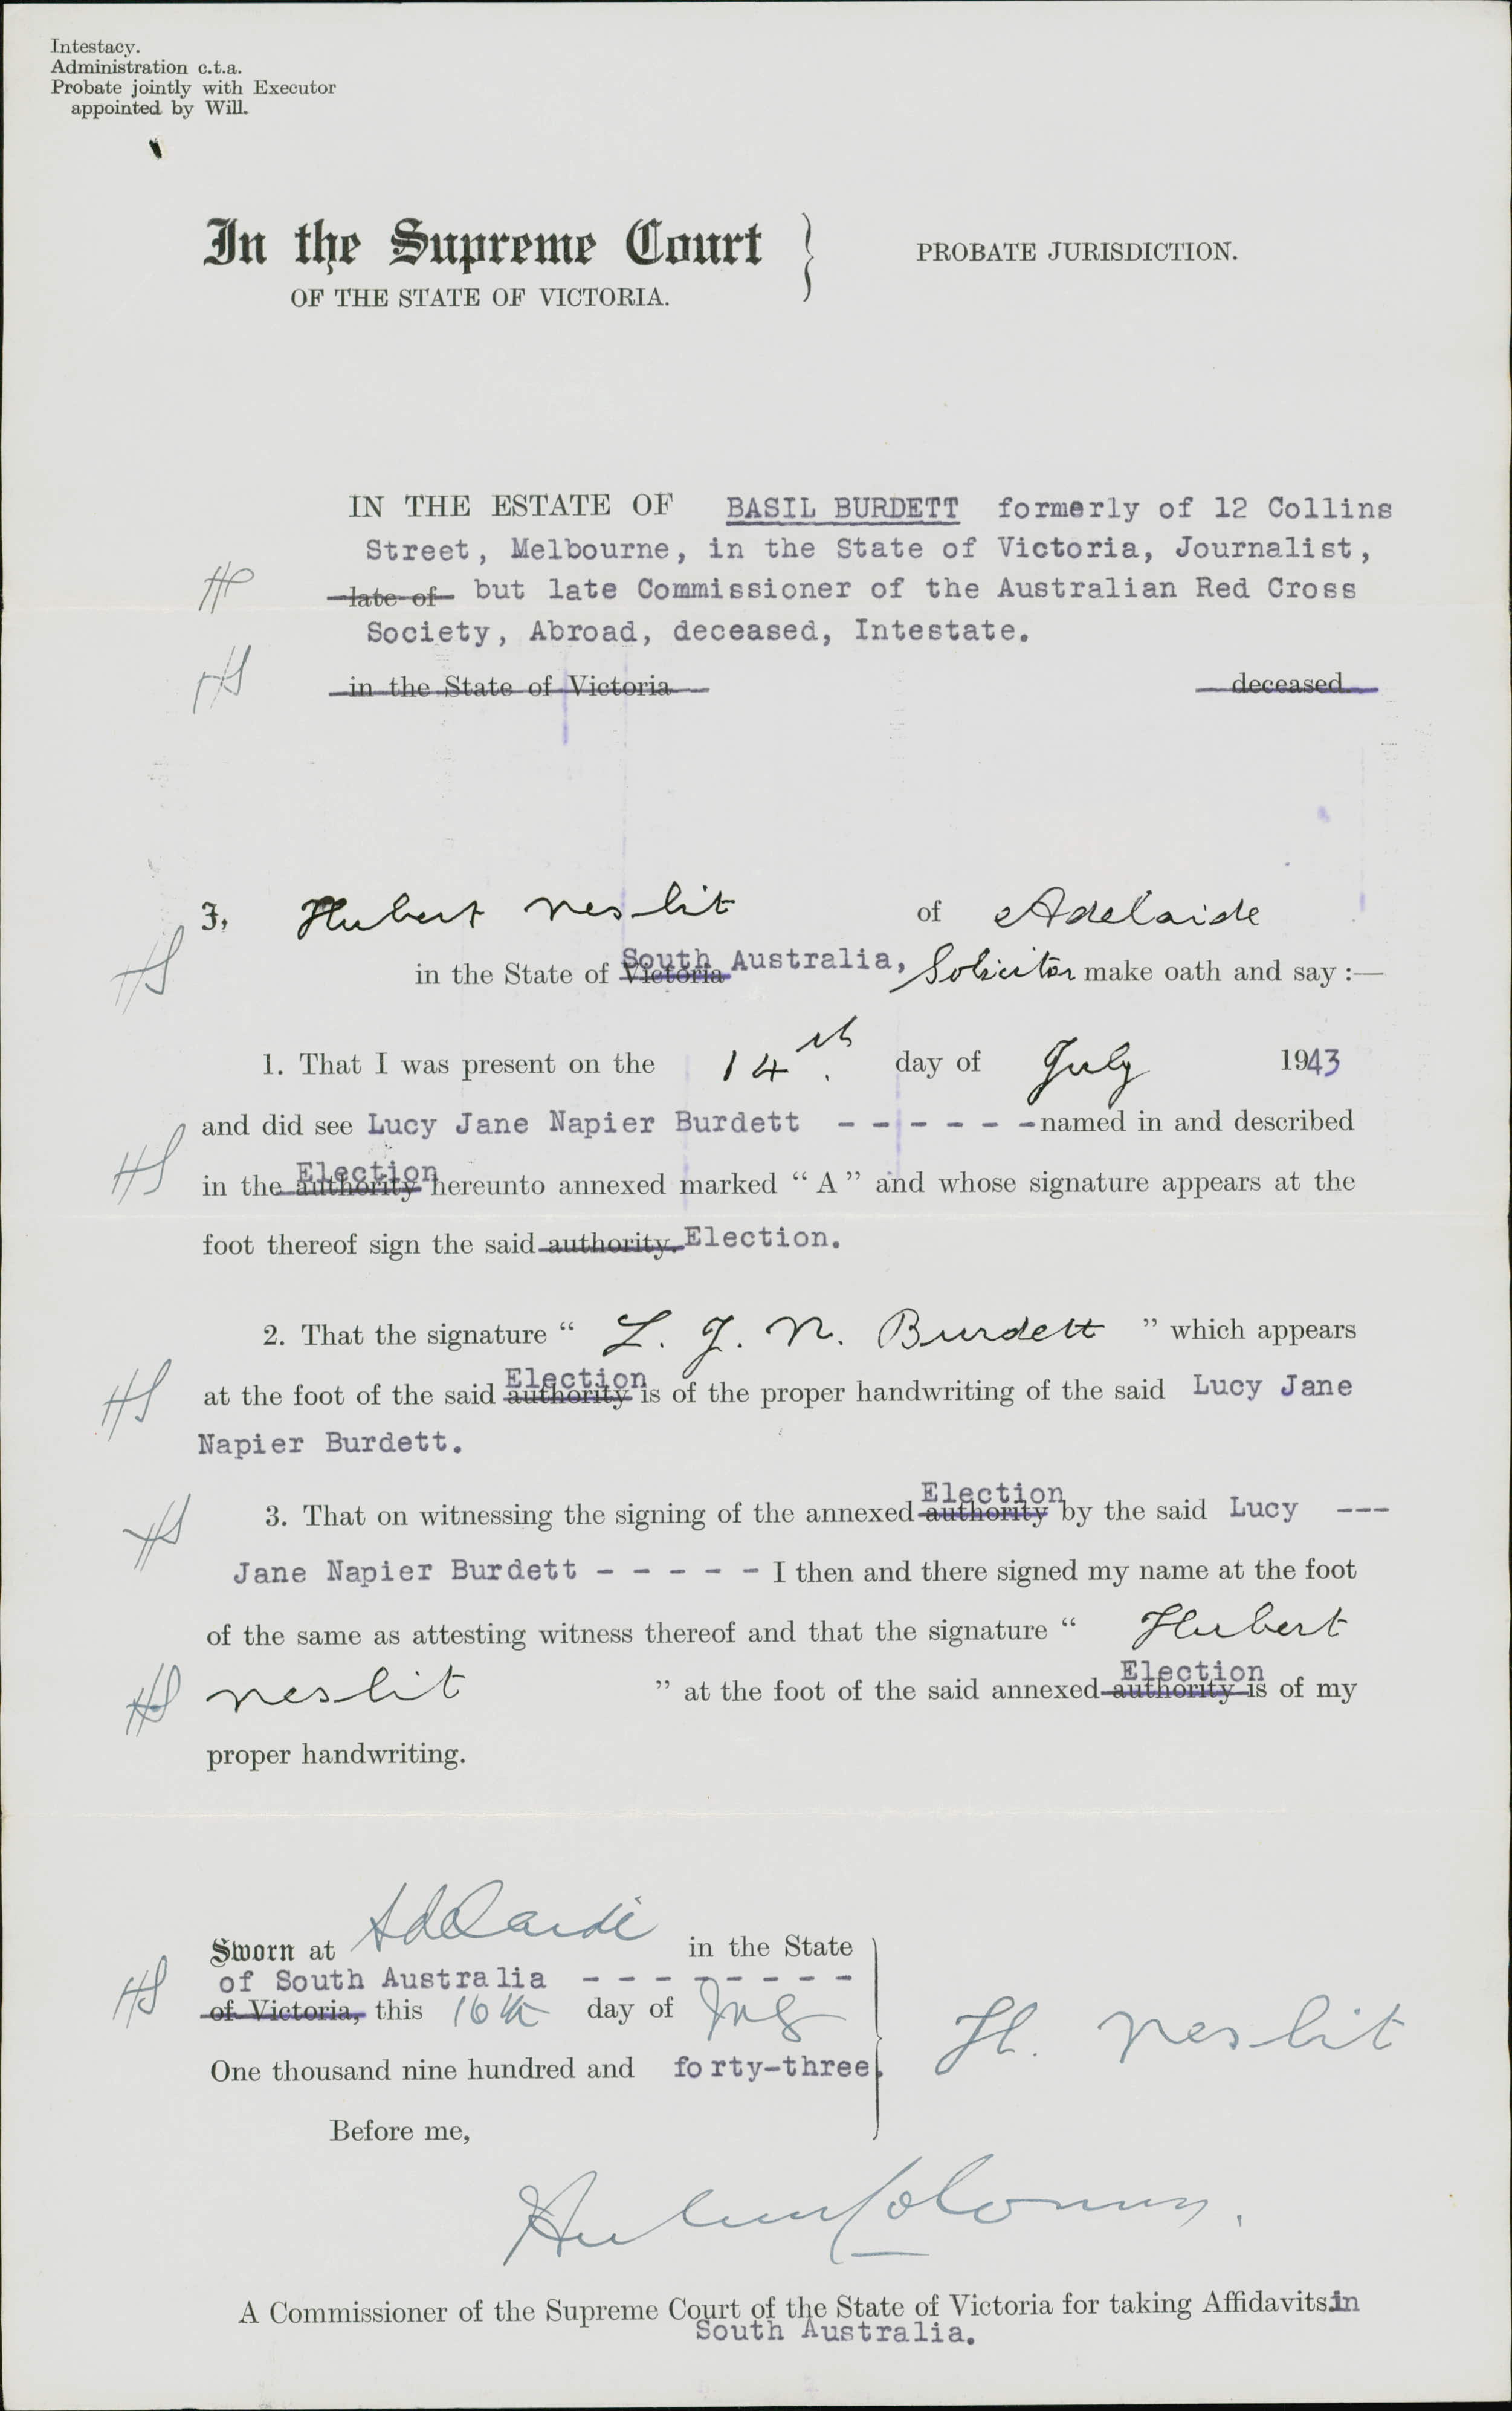 Intestacy.
Administration c.t.a.
Probate jointly with Executor
appointed by Will.
In the Supreme Court
OF THE STATE OF VICTORIA.
PROBATE JURISDICTION.
IN THE ESTATE OF BASIL BURDETT formerly of 12 Collins
Street, Melbourne, in the State of Victoria, Journalist,
late of but late Commissioner of the Australian Red Cross
Society, Abroad, deceased, Intestate.
in the State of Victoria deceased
I, Hubert Nesbit of Adelaide
in the State of Victoria South Australia, Solicitor make oath and say :—
1. That I was present on the 14th. day of July 1943
and did see Lucy Jane Napier Burdett - - - - - - named in and described
in the authority Election hereunto annexed marked “ A ” and whose signature appears at the
foot thereof sign the said authority. Election.
2. That the signature “ L. J. N. Burdett ” which appears
at the foot of the said authority Election is of the proper handwriting of the said Lucy Jane
Napier Burdett.
3. That on witnessing the signing of the annexed authority Election by the said Lucy ---
Jane Napier Burdett - - - - - I then and there signed my name at the foot
of the same as attesting witness thereof and that the signature “ Hubert
Nesbit ” at the foot of the said annexed authority Election is of my
proper handwriting.
Sworn at Adelaide in the State
of South Australia - - - - - - - -
of Victoria, this 16th day of July
One thousand nine hundred and forty-three.
H. Nesbit
Before me,
A Commissioner of the Supreme Court of the State of Victoria for taking Affidavits.in
South Australia.